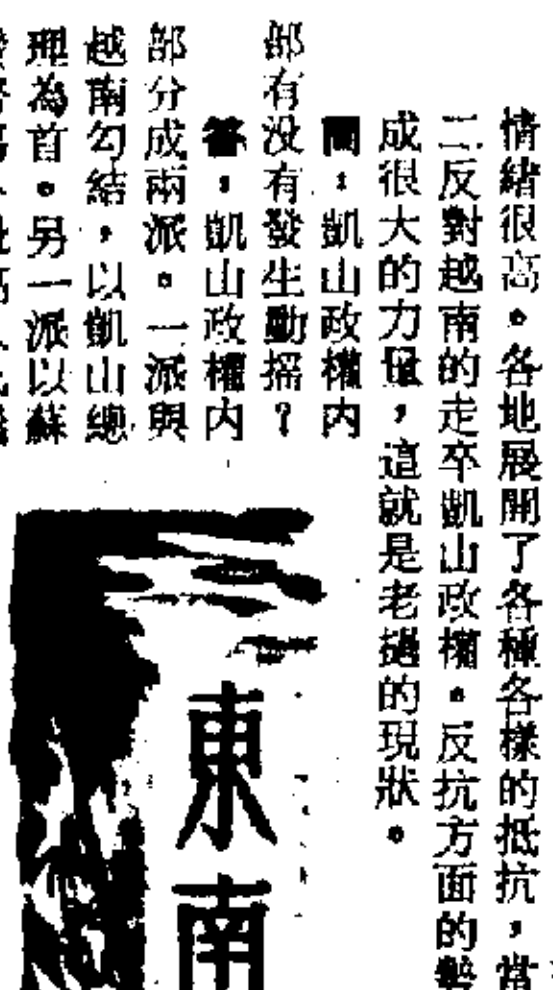 情緒很高。各地展開了各種各樣的抵抗，當
二反對越南的走卒凱山政權。反抗方面的勢
成很大的力量，這就是老撾的現狀。
問：凱山政權内
部有没有發生動搖？
答：凱山政權内
部分成兩派。一派與
越南勾結，以凱山總
理為首。另一派以蘇
東南